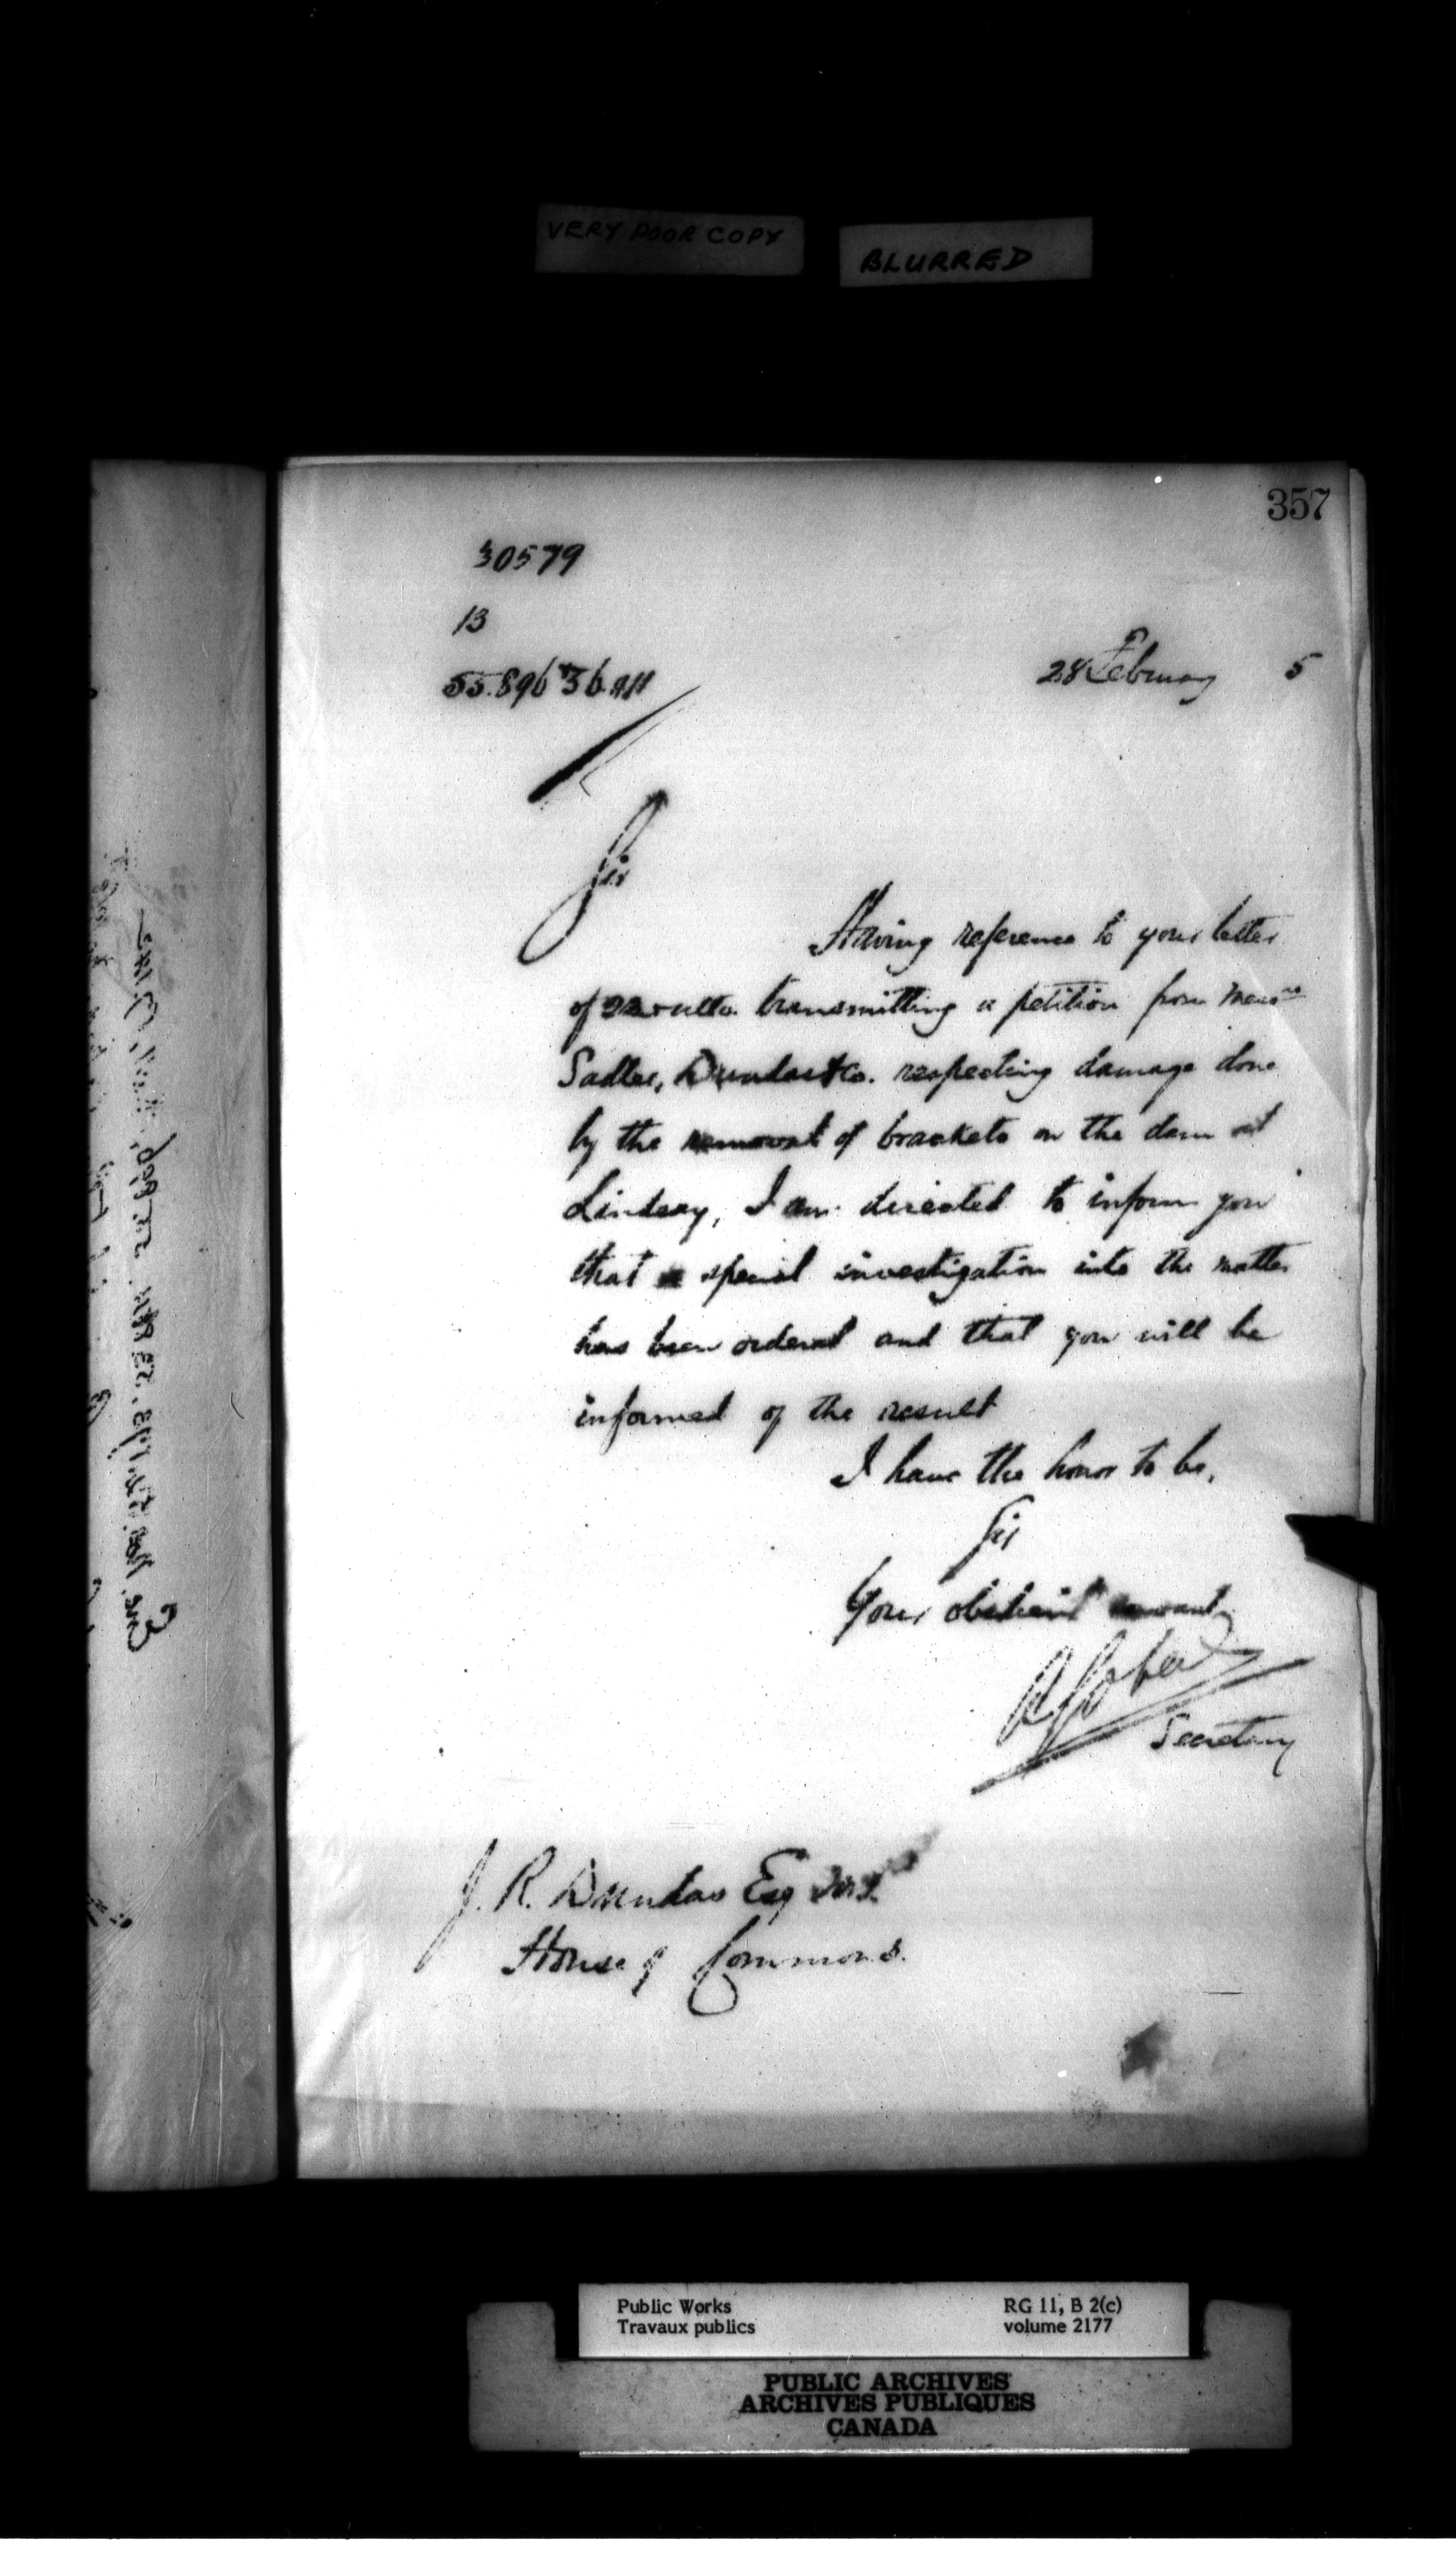 VERY POOR COPY
BLURRED
357
30579
13
28 February 5
Sir
Having reference to your letter
of ulto. transmitting a petition from Messrs
Sadler, Dundas & Co. respecting damage done
by the removal of brackets on the dam at
Lindsay, I am directed to inform you
that a special investigation into the matter
has been ordered and that you will be
informed of the result
I have the honor to be,
Sir
Your obedient servant
Secretary
J. R. Dundas Esq
House of Commons.
Public Works
Travaux publics
RG 11, B 2(c)
volume 2177
PUBLIC ARCHIVES
ARCHIVES PUBLIQUES
CANADA